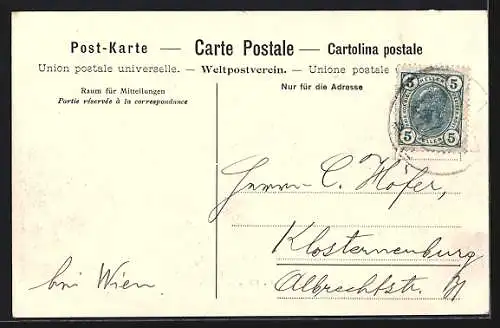 Post-Karte — Carte Postale — Cartolina postale
Union postale universelle. — Weltpostverein. — Unione postale
Raum für Mitteilungen
Partie réservée à la correspondance
Nur für die Adresse
5 HELLER 5
5 HELLER 5
Herrn C. Hofer,
Klosterneuburg
bei Wien.
Albrechtstr.